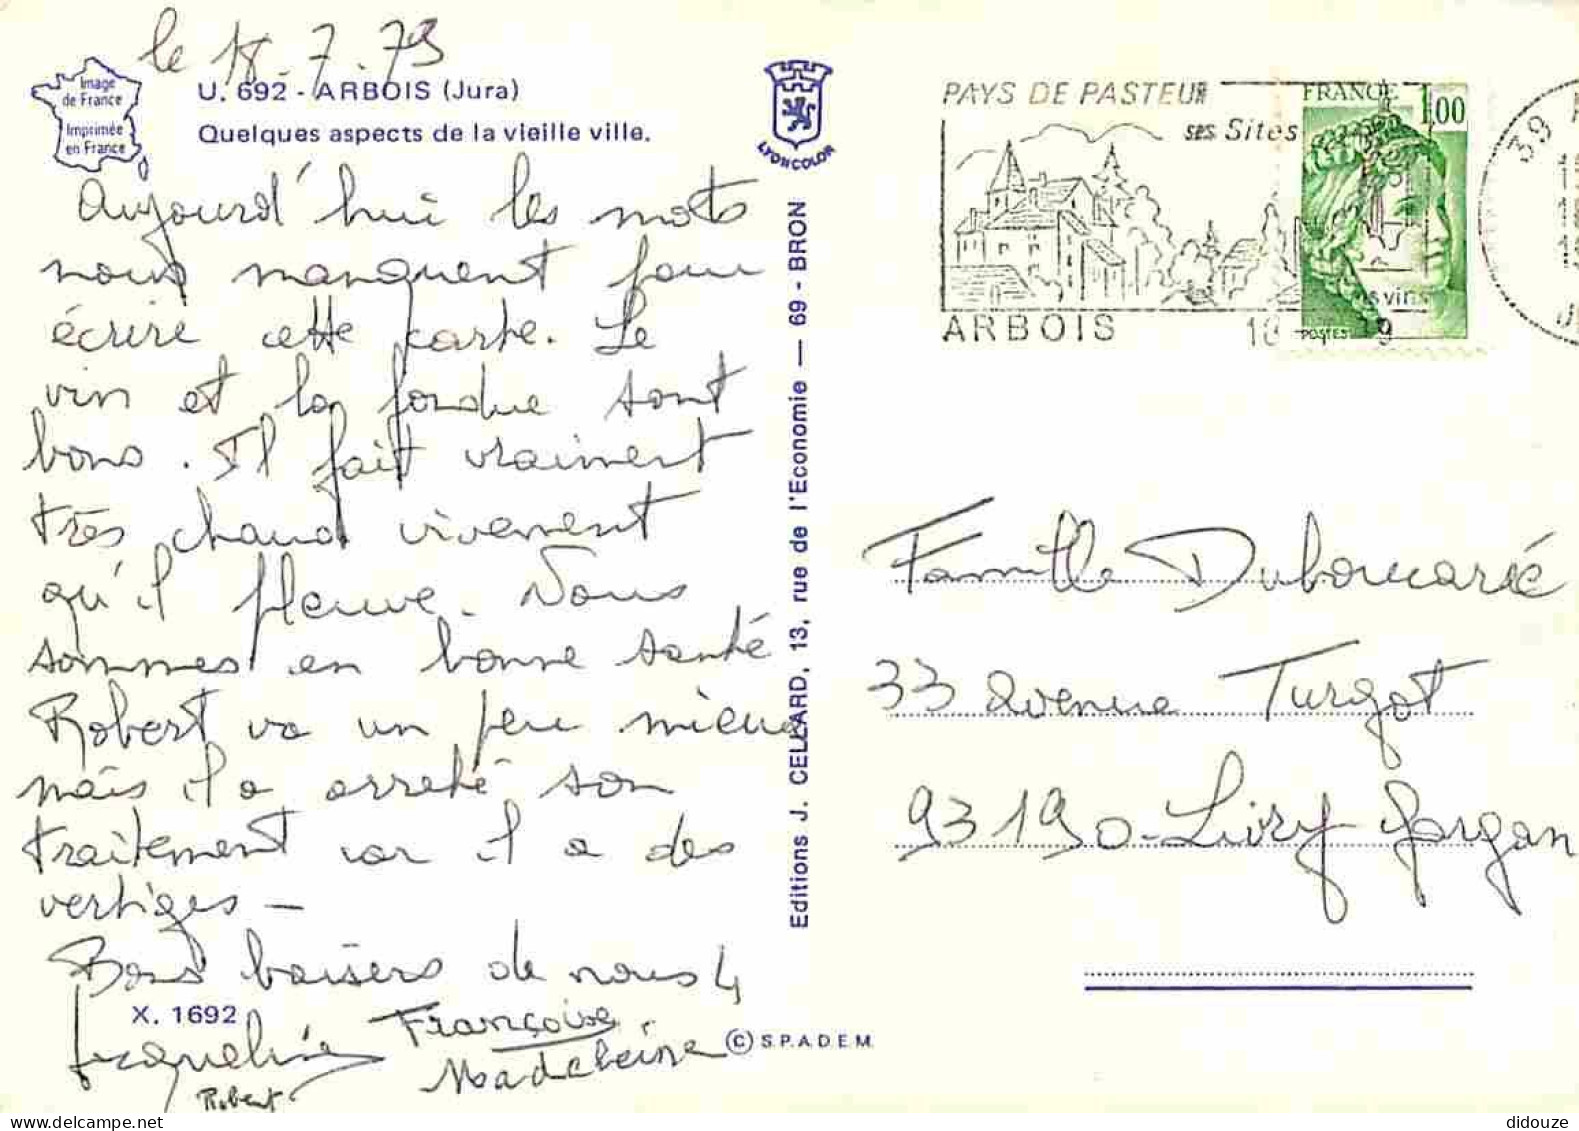 le 18.7.79
Image
de France
Imprimée
en France
U. 692 - ARBOIS (Jura)
Quelques aspects de la vieille ville.
LYONCOLOR
Aujourd'hui les mots
nous manquent pour
écrire cette carte. Le
vin et la fondue sont
bons. Il fait vraiment
très chaud vivement
qu'il pleuve. Nous
sommes en bonne santé
Robert va un peu mieux
mais il a arrêté son
traitement car il a des
vertiges -
Bons baisers de nous 4
X. 1692
Jacqueline Françoise
Madeleine
Robert
Editions J. CELLARD, 13, rue de l'Economie — 69 - BRON
© S.P.A.D.E.M.
PAYS DE PASTEUR
SES Sites
ARBOIS
FRANCE
1,00
POSTES
39
Famille Duboucarié
33 avenue Turgot
93190 - Livry Gargan
didouze